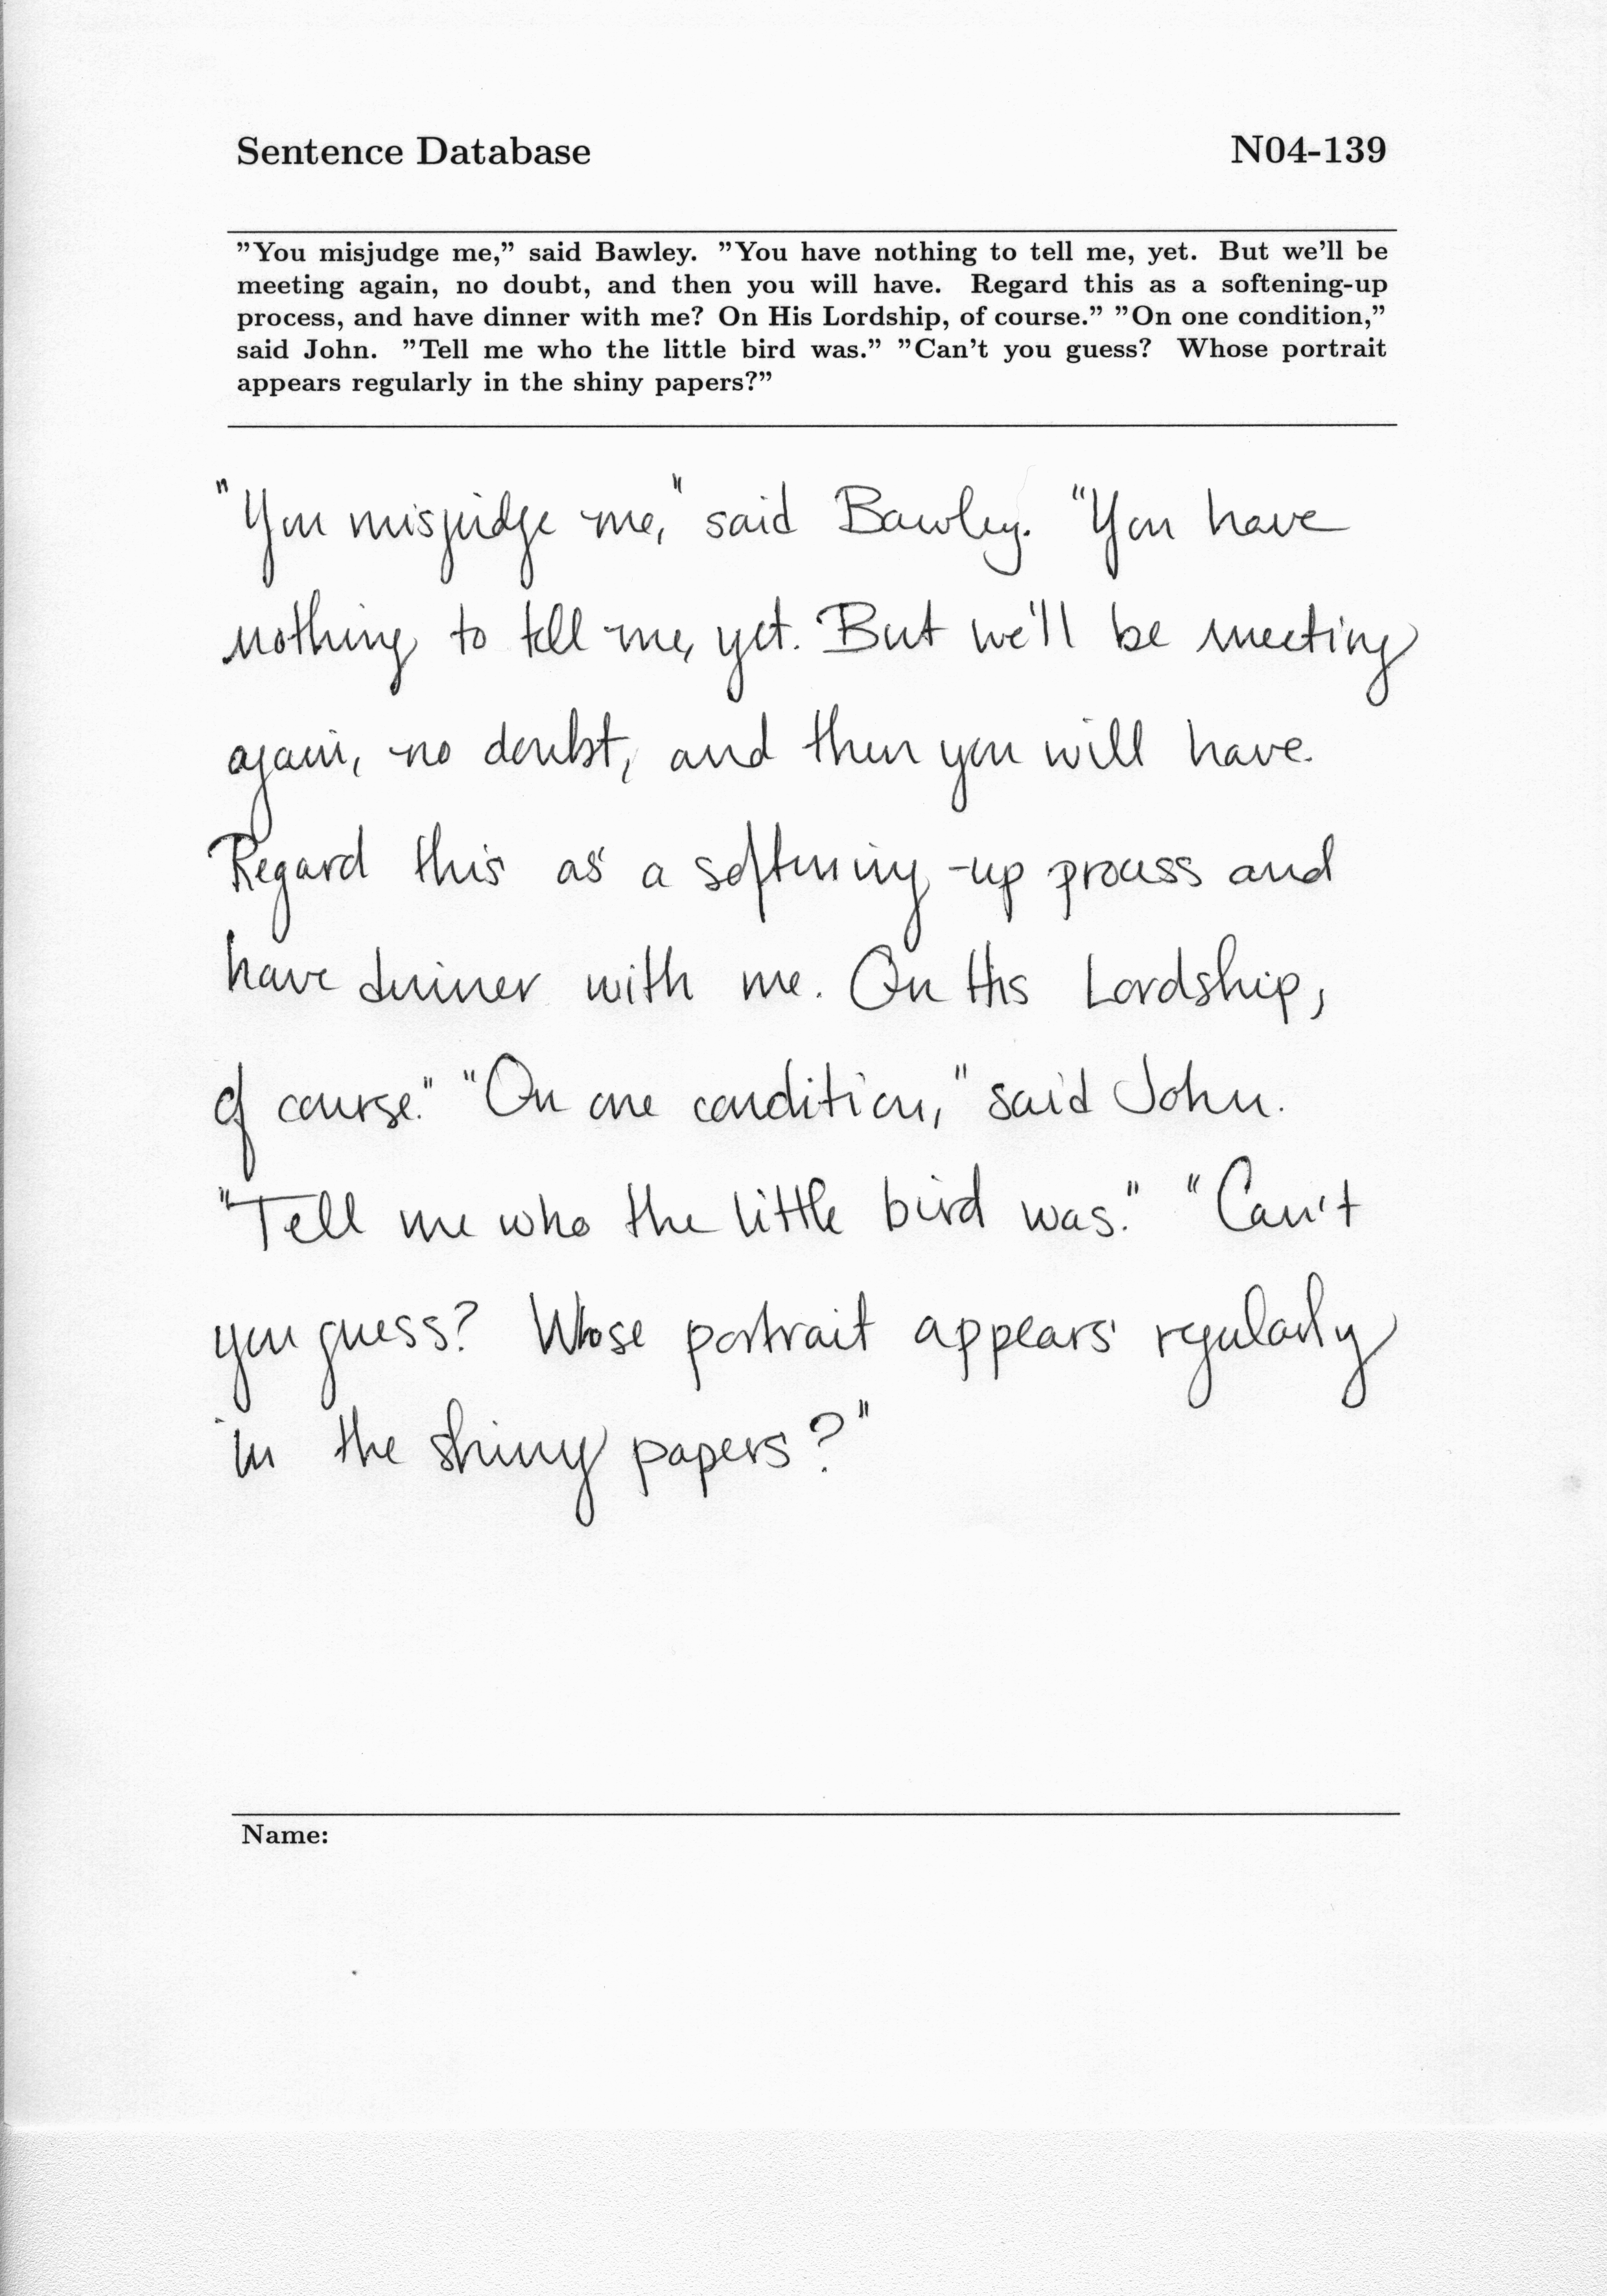 Sentence Database N04-139
"You misjudge me," said Bawley. "You have nothing to tell me, yet. But we'll be
meeting again, no doubt, and then you will have. Regard this as a softening-up
process, and have dinner with me? On His Lordship, of course." "On one condition,"
said John. "Tell me who the little bird was." "Can't you guess? Whose portrait
appears regularly in the shiny papers?"
"You misjudge me," said Bawley. "You have
nothing to tell me, yet. But we'll be meeting
again, no doubt, and then you will have.
Regard this as a softening-up process and
have dinner with me. On His Lordship,
of course." "On one condition," said John.
"Tell me who the little bird was." "Can't
you guess? Whose portrait appears regularly
in the shiny papers?"
Name: